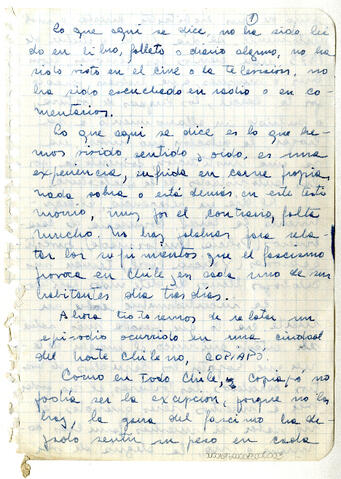 1
Lo que aquí se dice, no ha sido leí
do en libro, folleto o diario alguno, no ha
sido visto en el cine o la televisión, no
ha sido escuchado en radio o en co-
mentarios.
Lo que aquí se dice es lo que he-
mos vivido, sentido y oido, es una
experiencia, sufrida en carne propia,
nada sobra o está demás en este testi
monio, muy por el contrario, falta
mucho. No hay palabras para rela-
tar los sufrimientos que el fascismo
provoca en Chile, en cada uno de sus
habitantes día tras días.
Ahora trataremos de relatar un
episodio ocurrido en una ciudad
del norte Chileno, COPIAPÓ.
Como en todo Chile, Copiapó no
podía ser la excepción, porque no las
hay, la garra del fascimo ha de-
jado sentir su peso en cada